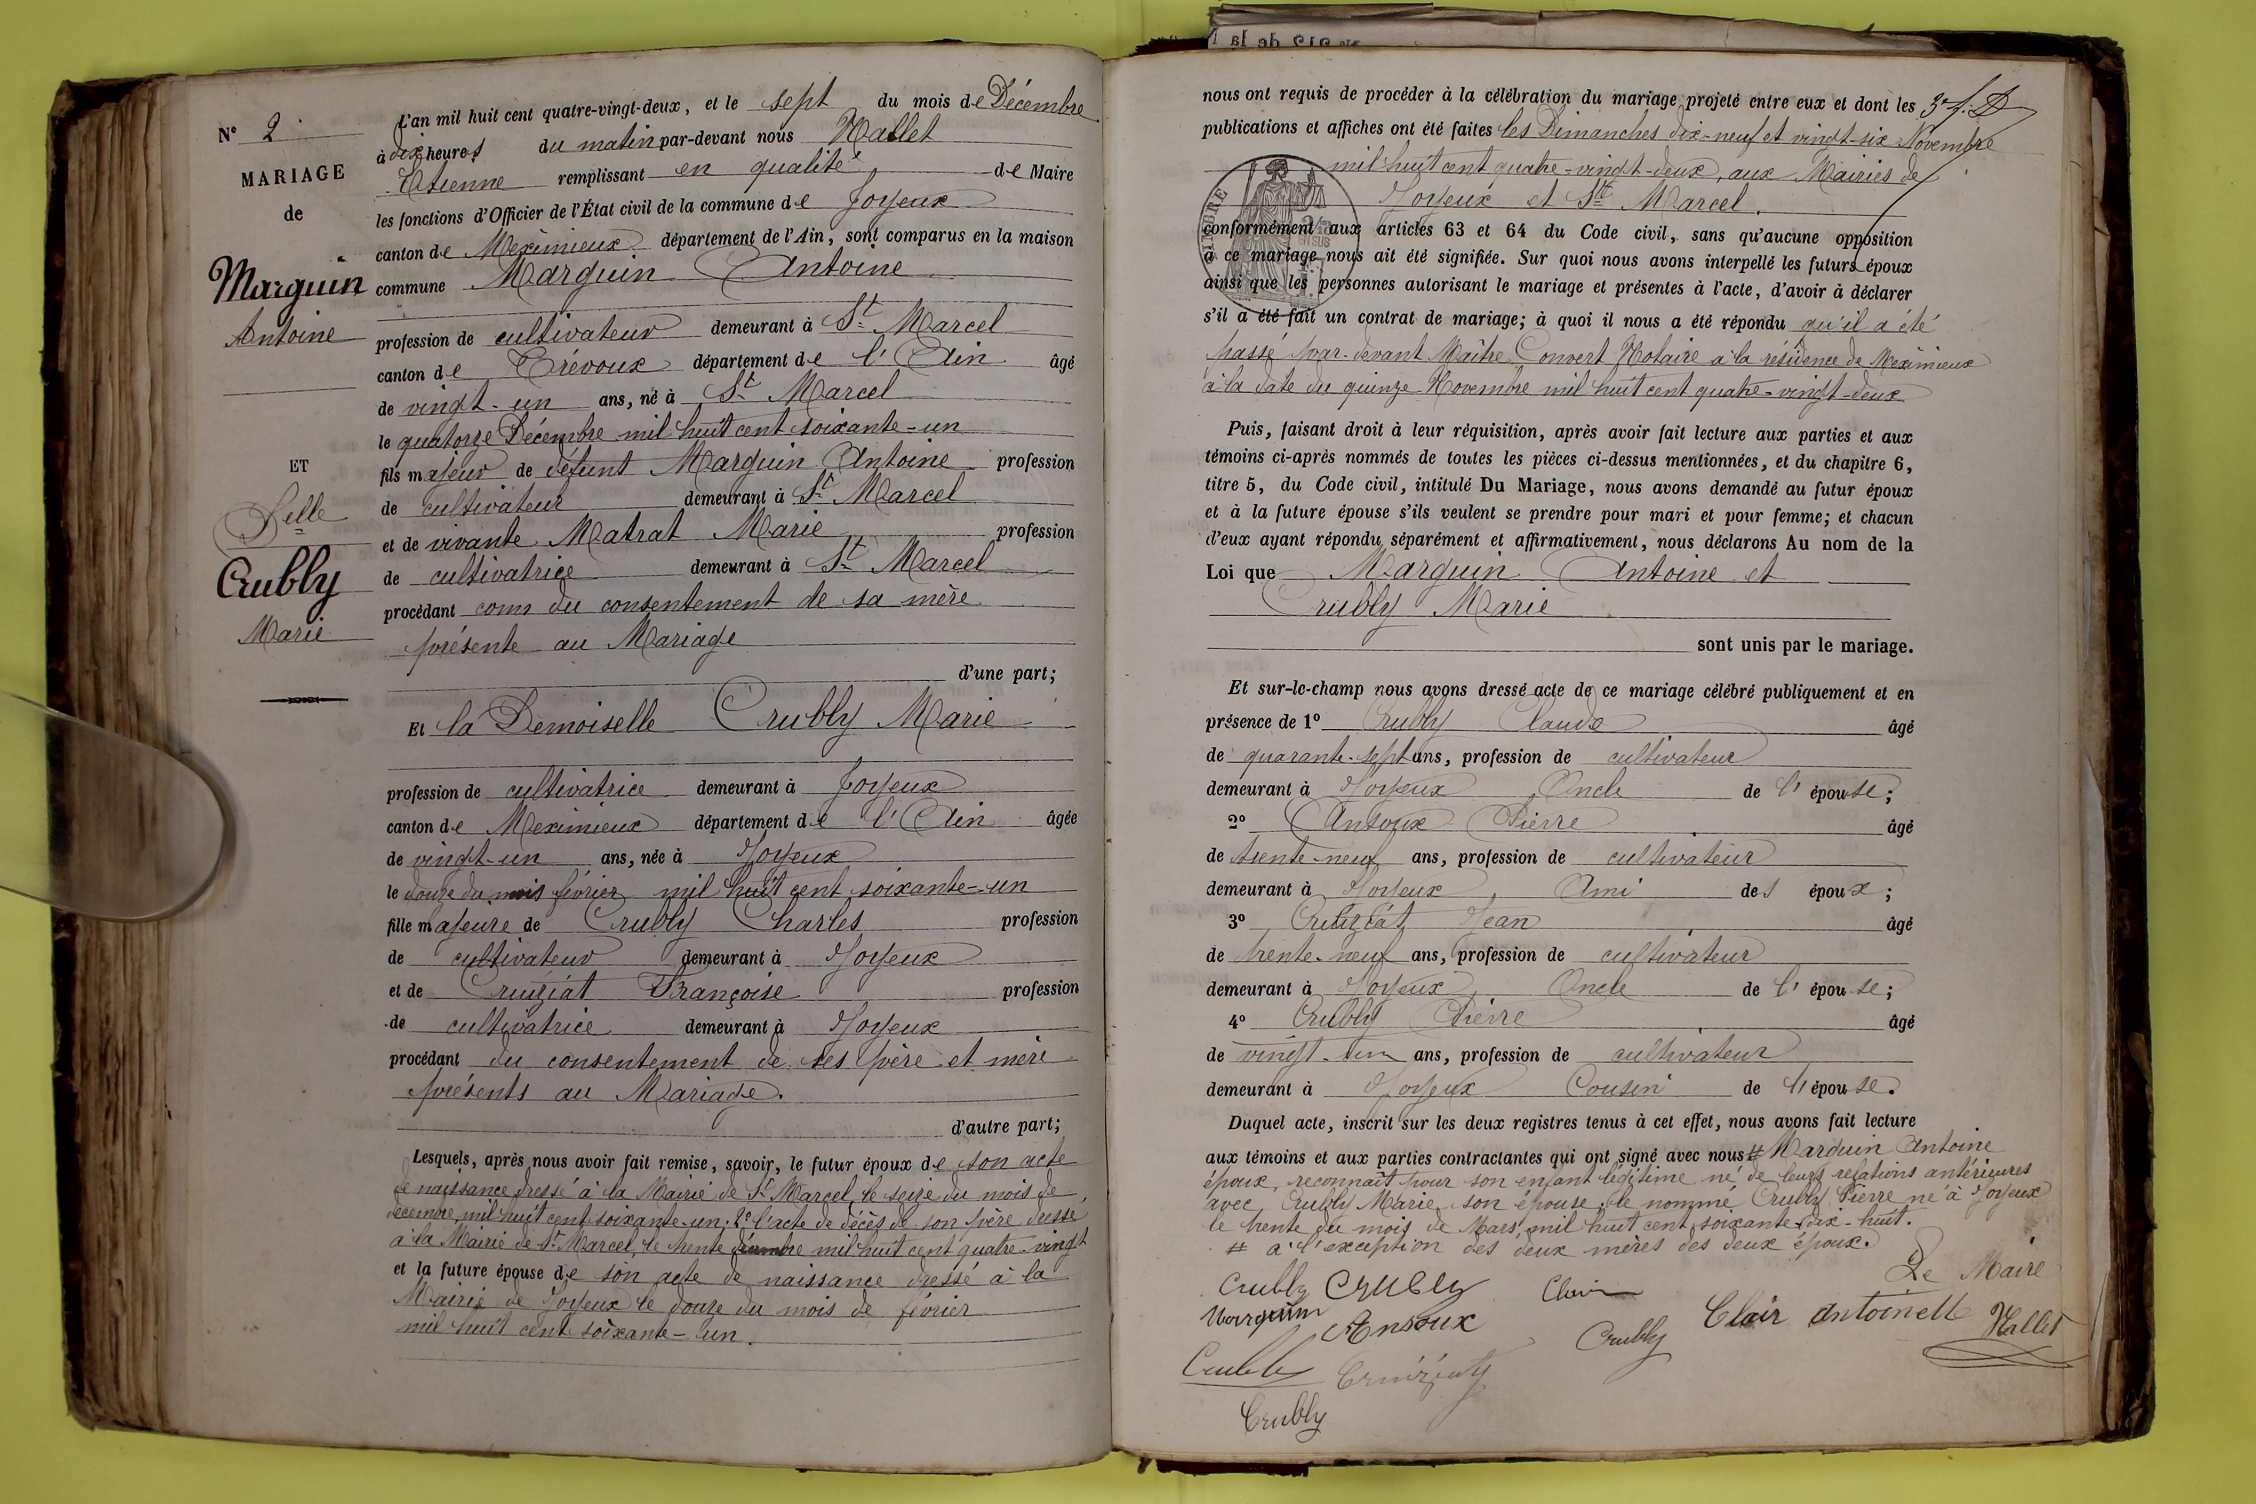 N° 2
MARIAGE
de
Marguin
Antoine
ET
Delle
Crubly
Marie
L'an mil huit cent quatre-vingt-deux, et le sept du mois de Décembre
à dix heures du matin par-devant nous Hallet
Etienne remplissant en qualité de Maire
les fonctions d'Officier de l'État civil de la commune de Joyeux
canton de Meximieux département de l'Ain, sont comparus en la maison
commune Marguin Antoine
profession de cultivateur demeurant à St Marcel
canton de Trévoux département de l'Ain âgé
de vingt-un ans, né à St Marcel
le quatorze Décembre mil huit cent soixante-un
fils majeur de défunt Marguin Antoine profession
de cultivateur demeurant à St Marcel
et de vivante Matrat Marie profession
de cultivatrice demeurant à St Marcel
procédant comm du consentement de sa mère
présente au Mariage
d'une part;
Et la Demoiselle Crubly Marie
profession de cultivatrice demeurant à Joyeux
canton de Meximieux département de l'Ain âgée
de vingt-un ans, née à Joyeux
le douze du mois février mil huit cent soixante-un
fille majeure de Crubly Charles profession
de cultivateur demeurant à Joyeux
et de Cruiziat Françoise profession
de cultivatrice demeurant à Joyeux
procédant du consentement de ses père et mère
présents au Mariage.
d'autre part;
Lesquels, après nous avoir fait remise, savoir, le futur époux de son acte
de naissance dressé à la Mairie de St Marcel, le seize du mois de
décembre mil huit cent soixante-un. 2° l'acte de décès de son père dressé
à la Mairie de St Marcel, le trente décembre mil huit cent quatre-vingt
et la future épouse de son acte de naissance dressé à la
Mairie de Joyeux le douze du mois de février
mil huit cent soixante-un.
nous ont requis de procéder à la célébration du mariage projeté entre eux et dont les
publications et affiches ont été faites les Dimanches dix-neuf et vingt-six Novembre
mil huit cent quatre-vingt-deux, aux Mairies de
Joyeux et St Marcel.
TIMBRE
conformément aux articles 63 et 64 du Code civil, sans qu'aucune opposition
à ce mariage nous ait été signifiée. Sur quoi nous avons interpellé les futurs époux
ainsi que les personnes autorisant le mariage et présentes à l'acte, d'avoir à déclarer
s'il a été fait un contrat de mariage; à quoi il nous a été répondu qu'il a été
passé par-devant Maître Convert Notaire à la résidence de Meximieux
à la date du quinze Novembre mil huit cent quatre-vingt-deux
Puis, faisant droit à leur réquisition, après avoir fait lecture aux parties et aux
témoins ci-après nommés de toutes les pièces ci-dessus mentionnées, et du chapitre 6,
titre 5, du Code civil, intitulé Du Mariage, nous avons demandé au futur époux
et à la future épouse s'ils veulent se prendre pour mari et pour femme; et chacun
d'eux ayant répondu séparément et affirmativement, nous déclarons Au nom de la
Loi que Marguin Antoine et
Crubly Marie
sont unis par le mariage.
Et sur-le-champ nous avons dressé acte de ce mariage célébré publiquement et en
présence de 1° Crubly Claude âgé
de quarante-sept ans, profession de cultivateur
demeurant à Joyeux Oncle de l'épouse;
2° Ansoux Pierre âgé
de trente-neuf ans, profession de cultivateur
demeurant à Joyeux Ami des époux;
3° Cruiziat Jean âgé
de trente-neuf ans, profession de cultivateur
demeurant à Joyeux Oncle de l'épouse;
4° Crubly Pierre âgé
de vingt-un ans, profession de cultivateur
demeurant à Joyeux Cousin de l'épouse.
Duquel acte, inscrit sur les deux registres tenus à cet effet, nous avons fait lecture
aux témoins et aux parties contractantes qui ont signé avec nous # Marguin Antoine
époux, reconnaît pour son enfant légitime né de leurs relations antérieures
avec Crubly Marie son épouse, le nommé Crubly Pierre né à Joyeux
le trente du mois de Mars mil huit cent soixante-dix-huit.
# à l'exception des deux mères des deux époux.
Le Maire
Crubly CRUBLY Clair
Marguin Ansoux Crubly Clair Antoinette Hallet
Crubly Cruiziat
Crubly